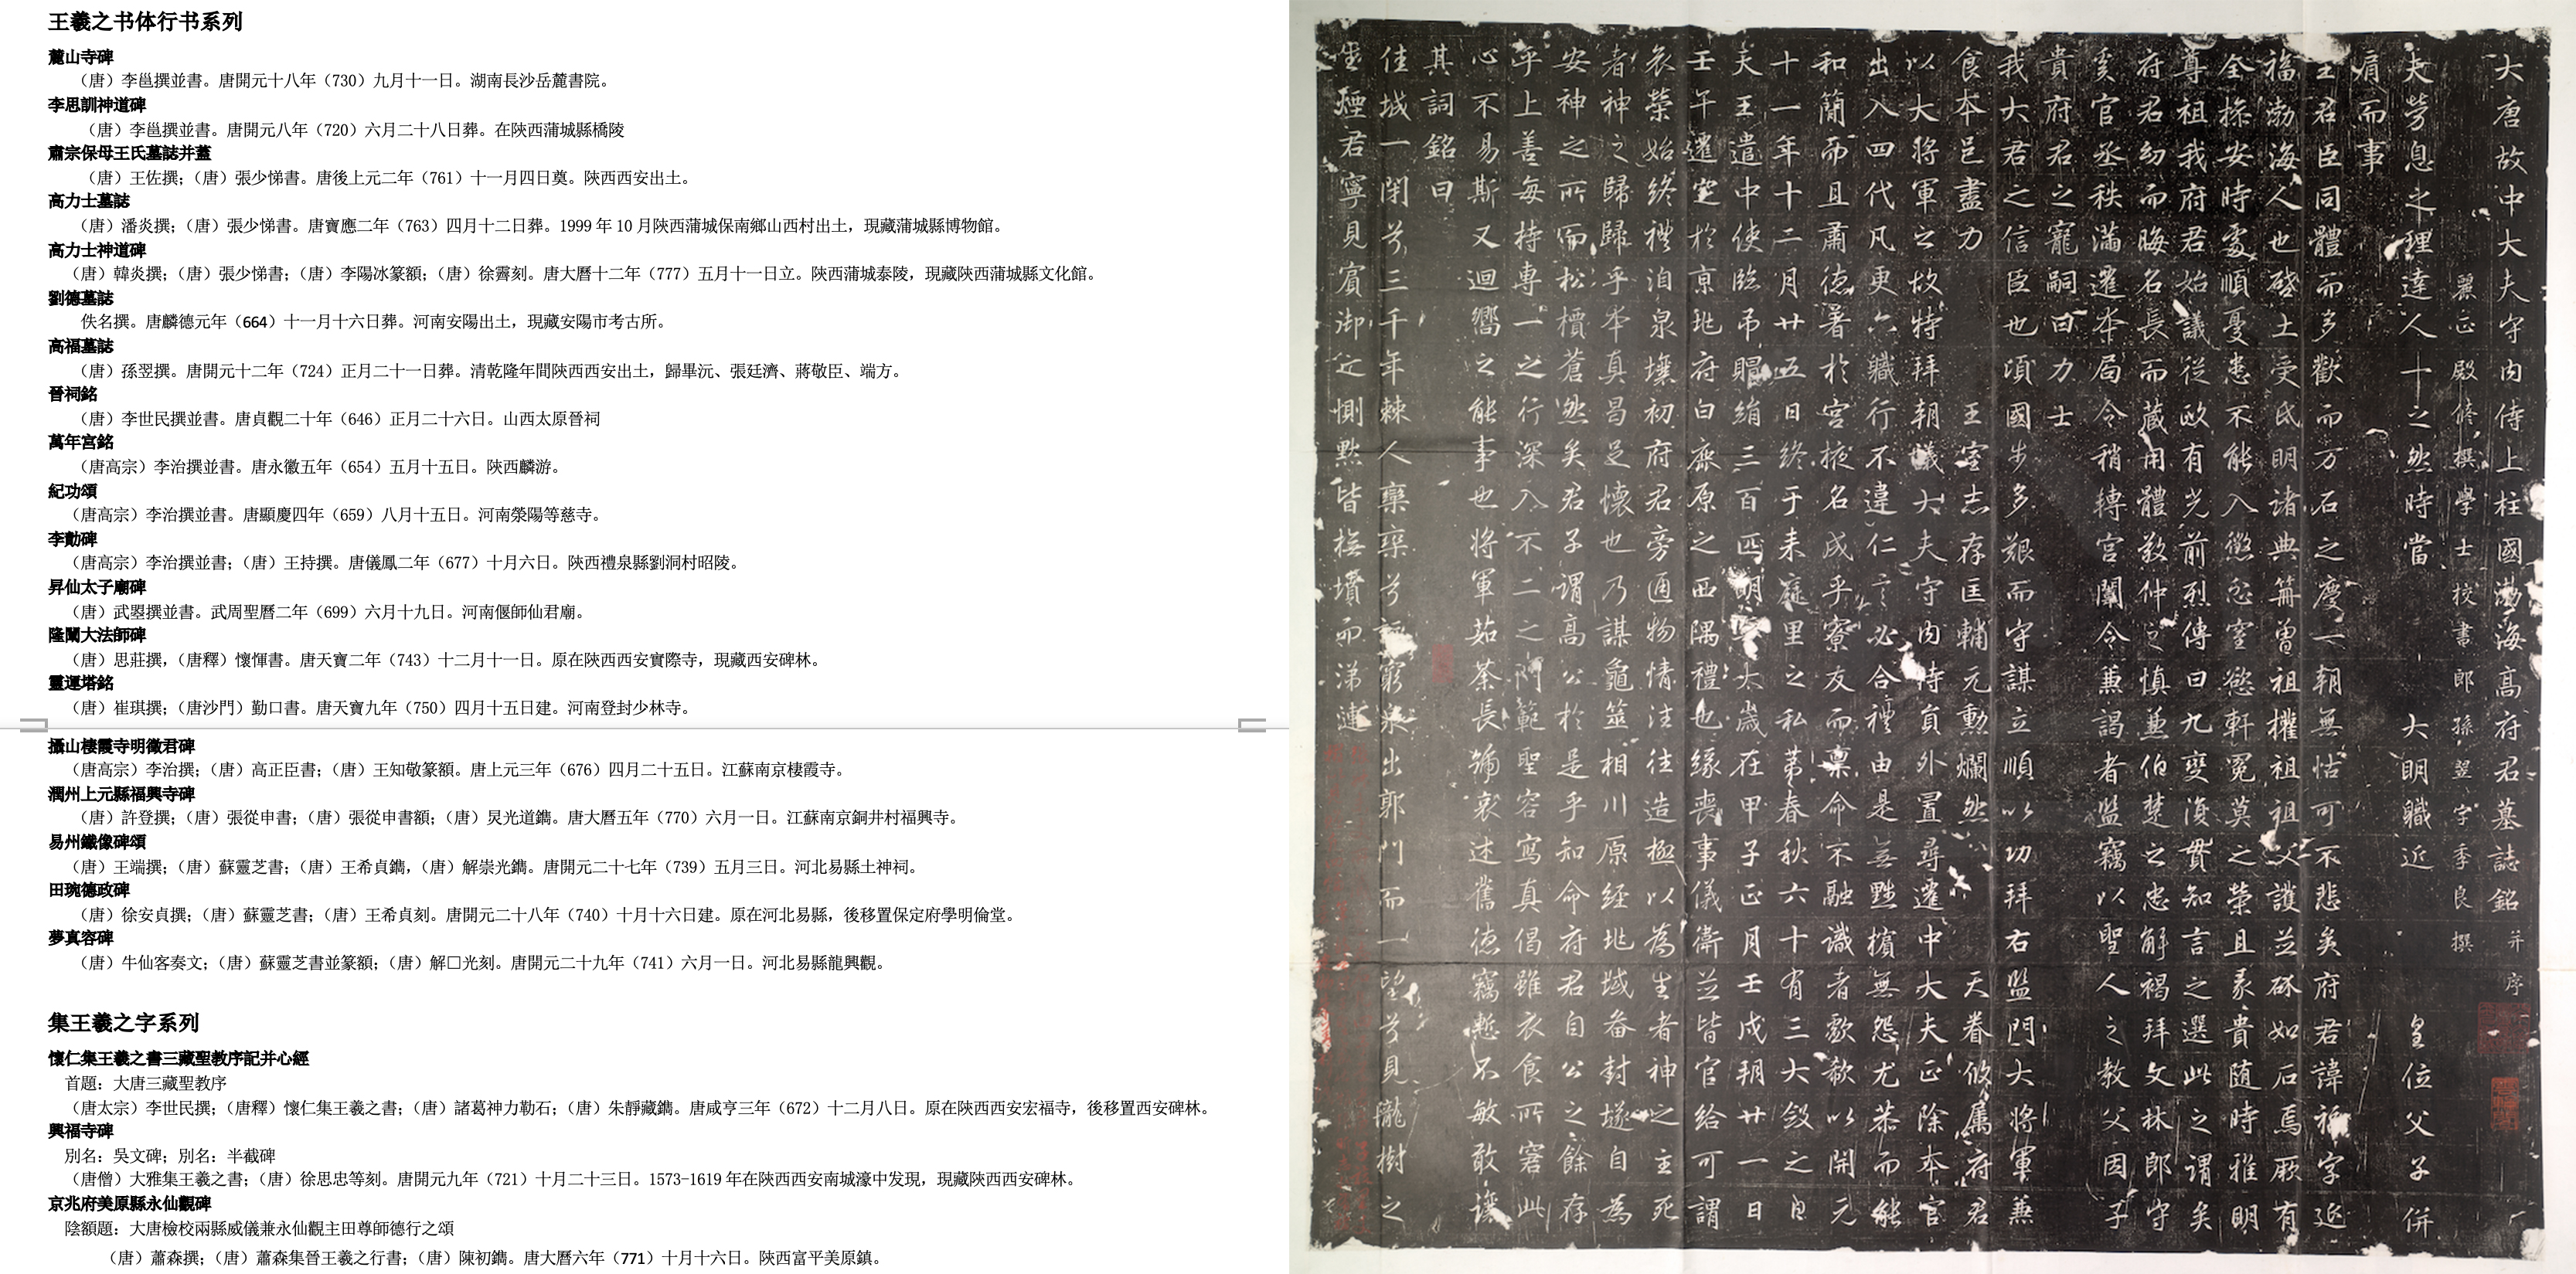 王羲之书体行书系列
麓山寺碑
（唐）李邕撰並書。唐開元十八年（730）九月十一日。湖南長沙岳麓書院。
李思訓神道碑
（唐）李邕撰並書。唐開元八年（720）六月二十八日葬。在陝西蒲城縣橋陵
肅宗保母王氏墓誌并蓋
（唐）王佐撰；（唐）張少悌書。唐後上元二年（761）十一月四日奠。陝西西安出土。
高力士墓誌
（唐）潘炎撰；（唐）張少悌書。唐寶應二年（763）四月十二日葬。1999年10月陝西蒲城保南鄉山西村出土，現藏蒲城縣博物館。
高力士神道碑
（唐）韓炎撰；（唐）張少悌書；（唐）李陽冰篆額；（唐）徐霽刻。唐大曆十二年（777）五月十一日立。陝西蒲城泰陵，現藏陝西蒲城縣文化館。
劉德墓誌
佚名撰。唐麟德元年（664）十一月十六日葬。河南安陽出土，現藏安陽市考古所。
高福墓誌
（唐）孫翌撰。唐開元十二年（724）正月二十一日葬。清乾隆年間陝西西安出土，歸畢沅、張廷濟、蔣敬臣、端方。
晉祠銘
（唐）李世民撰並書。唐貞觀二十年（646）正月二十六日。山西太原晉祠
萬年宮銘
（唐高宗）李治撰並書。唐永徽五年（654）五月十五日。陝西麟游。
紀功頌
（唐高宗）李治撰並書。唐顯慶四年（659）八月十五日。河南滎陽等慈寺。
李勣碑
（唐高宗）李治撰並書；（唐）王持撰。唐儀鳳二年（677）十月六日。陝西禮泉縣劉洞村昭陵。
昇仙太子廟碑
（唐）武曌撰並書。武周聖曆二年（699）六月十九日。河南偃師仙君廟。
隆闡大法師碑
（唐）思莊撰，（唐釋）懷惲書。唐天寶二年（743）十二月十一日。原在陝西西安實際寺，現藏西安碑林。
靈運塔銘
（唐）崔琪撰；（唐沙門）勤口書。唐天寶九年（750）四月十五日建。河南登封少林寺。
攝山棲霞寺明徵君碑
（唐高宗）李治撰；（唐）高正臣書；（唐）王知敬篆額。唐上元三年（676）四月二十五日。江蘇南京棲霞寺。
潤州上元縣福興寺碑
（唐）許登撰；（唐）張從申書；（唐）張從申書額；（唐）炅光道鐫。唐大曆五年（770）六月一日。江蘇南京銅井村福興寺。
易州鐵像碑頌
（唐）王端撰；（唐）蘇靈芝書；（唐）王希貞鐫，（唐）解崇光鐫。唐開元二十七年（739）五月三日。河北易縣土神祠。
田琬德政碑
（唐）徐安貞撰；（唐）蘇靈芝書；（唐）王希貞刻。唐開元二十八年（740）十月十六日建。原在河北易縣，後移置保定府學明倫堂。
夢真容碑
（唐）牛仙客奏文；（唐）蘇靈芝書並篆額；（唐）解□光刻。唐開元二十九年（741）六月一日。河北易縣龍興觀。
集王羲之字系列
懷仁集王羲之書三藏聖教序記并心經
首題：大唐三藏聖教序
（唐太宗）李世民撰；（唐釋）懷仁集王羲之書；（唐）諸葛神力勒石；（唐）朱靜藏鐫。唐咸亨三年（672）十二月八日。原在陝西西安宏福寺，後移置西安碑林。
興福寺碑
別名：吳文碑；別名：半截碑
（唐僧）大雅集王羲之書；（唐）徐思忠等刻。唐開元九年（721）十月二十三日。1573-1619年在陝西西安南城濠中发現，現藏陝西西安碑林。
京兆府美原縣永仙觀碑
陰額題：大唐檢校兩縣威儀兼永仙觀主田尊師德行之頌
（唐）蕭森撰；（唐）蕭森集晉王羲之行書；（唐）陳初鐫。唐大曆六年（771）十月十六日。陝西富平美原鎮。
大唐故中大夫守内侍上柱國渤海高府君墓誌銘并序
麗正殿修撰學士校書郎孫翌字季良撰
夫勞息之理達人十之然時當 大明職近 皇位父子併
肩而事
王君臣同體而多歡而万石之慶一朝無怙可不悲矣府君諱福字延
福渤海人也啓土受氏明諸典冊曾祖權祖祖父護並砅如石焉厥有
全操安時處順憂患不能入懲忿窒慾軒冕莫之榮且豕貴随時雅明
尊祖我府君始議從政有光前烈傳曰九變復貫知言之選此之謂矣
府君幼而晦名長而藏用體敦仲之慎兼伯楚之忠解褐拜文林郎守
奚官丞秩滿遷夲局令稍轉宮闈令兼謁者监竊以聖人之教父因子
貴府君之寵嗣曰力士
我大君之信臣也項國步多艱而守謀立順以功拜右监門大將軍兼
食本邑盡力 王室志存匡輔元勳爛然 天眷攸属府君
以大將軍之故特拜朝議大夫守内侍員外置尋遷中大夫正除本官
出入四代凡更六職行不違仁言必合禮由是無黜擯無怨尤恭而能
和簡而且肅德著於宮掖名成乎寮友而禀命不融識者歎欷以開元
十一年十二月廿五日終于来庭里之私第春秋六十有三大斂之日
天王遣中使臨弔賵絹三百匹明年太歲在甲子正月壬戌朔廿一日
壬午遷窆於京兆府白鹿原之西隅禮也緣喪事儀衛並皆官給可謂
哀榮始終禮洎泉壤初府君旁通物情洼往造極以為生者神之主死
者神之歸歸乎夲真曷足懷也乃謀龜筮相川原経兆域畚封墜自為
安神之所而松檟蒼然矣君子謂高公於是乎知命府君自公之餘存
乎上善每持專一之行深入不二之門範聖容寫真偈雖衣食所窘此
心不易斯又迴嚮之能事也将軍茹荼長號衰述舊德竊慙不敏敢讓
其詞銘曰
佳城一閇兮三千年棘人欒欒兮訴窮泉出郭門而一望兮見隴樹之
生煙君寧見賓御近惻默皆撫墳而涕漣